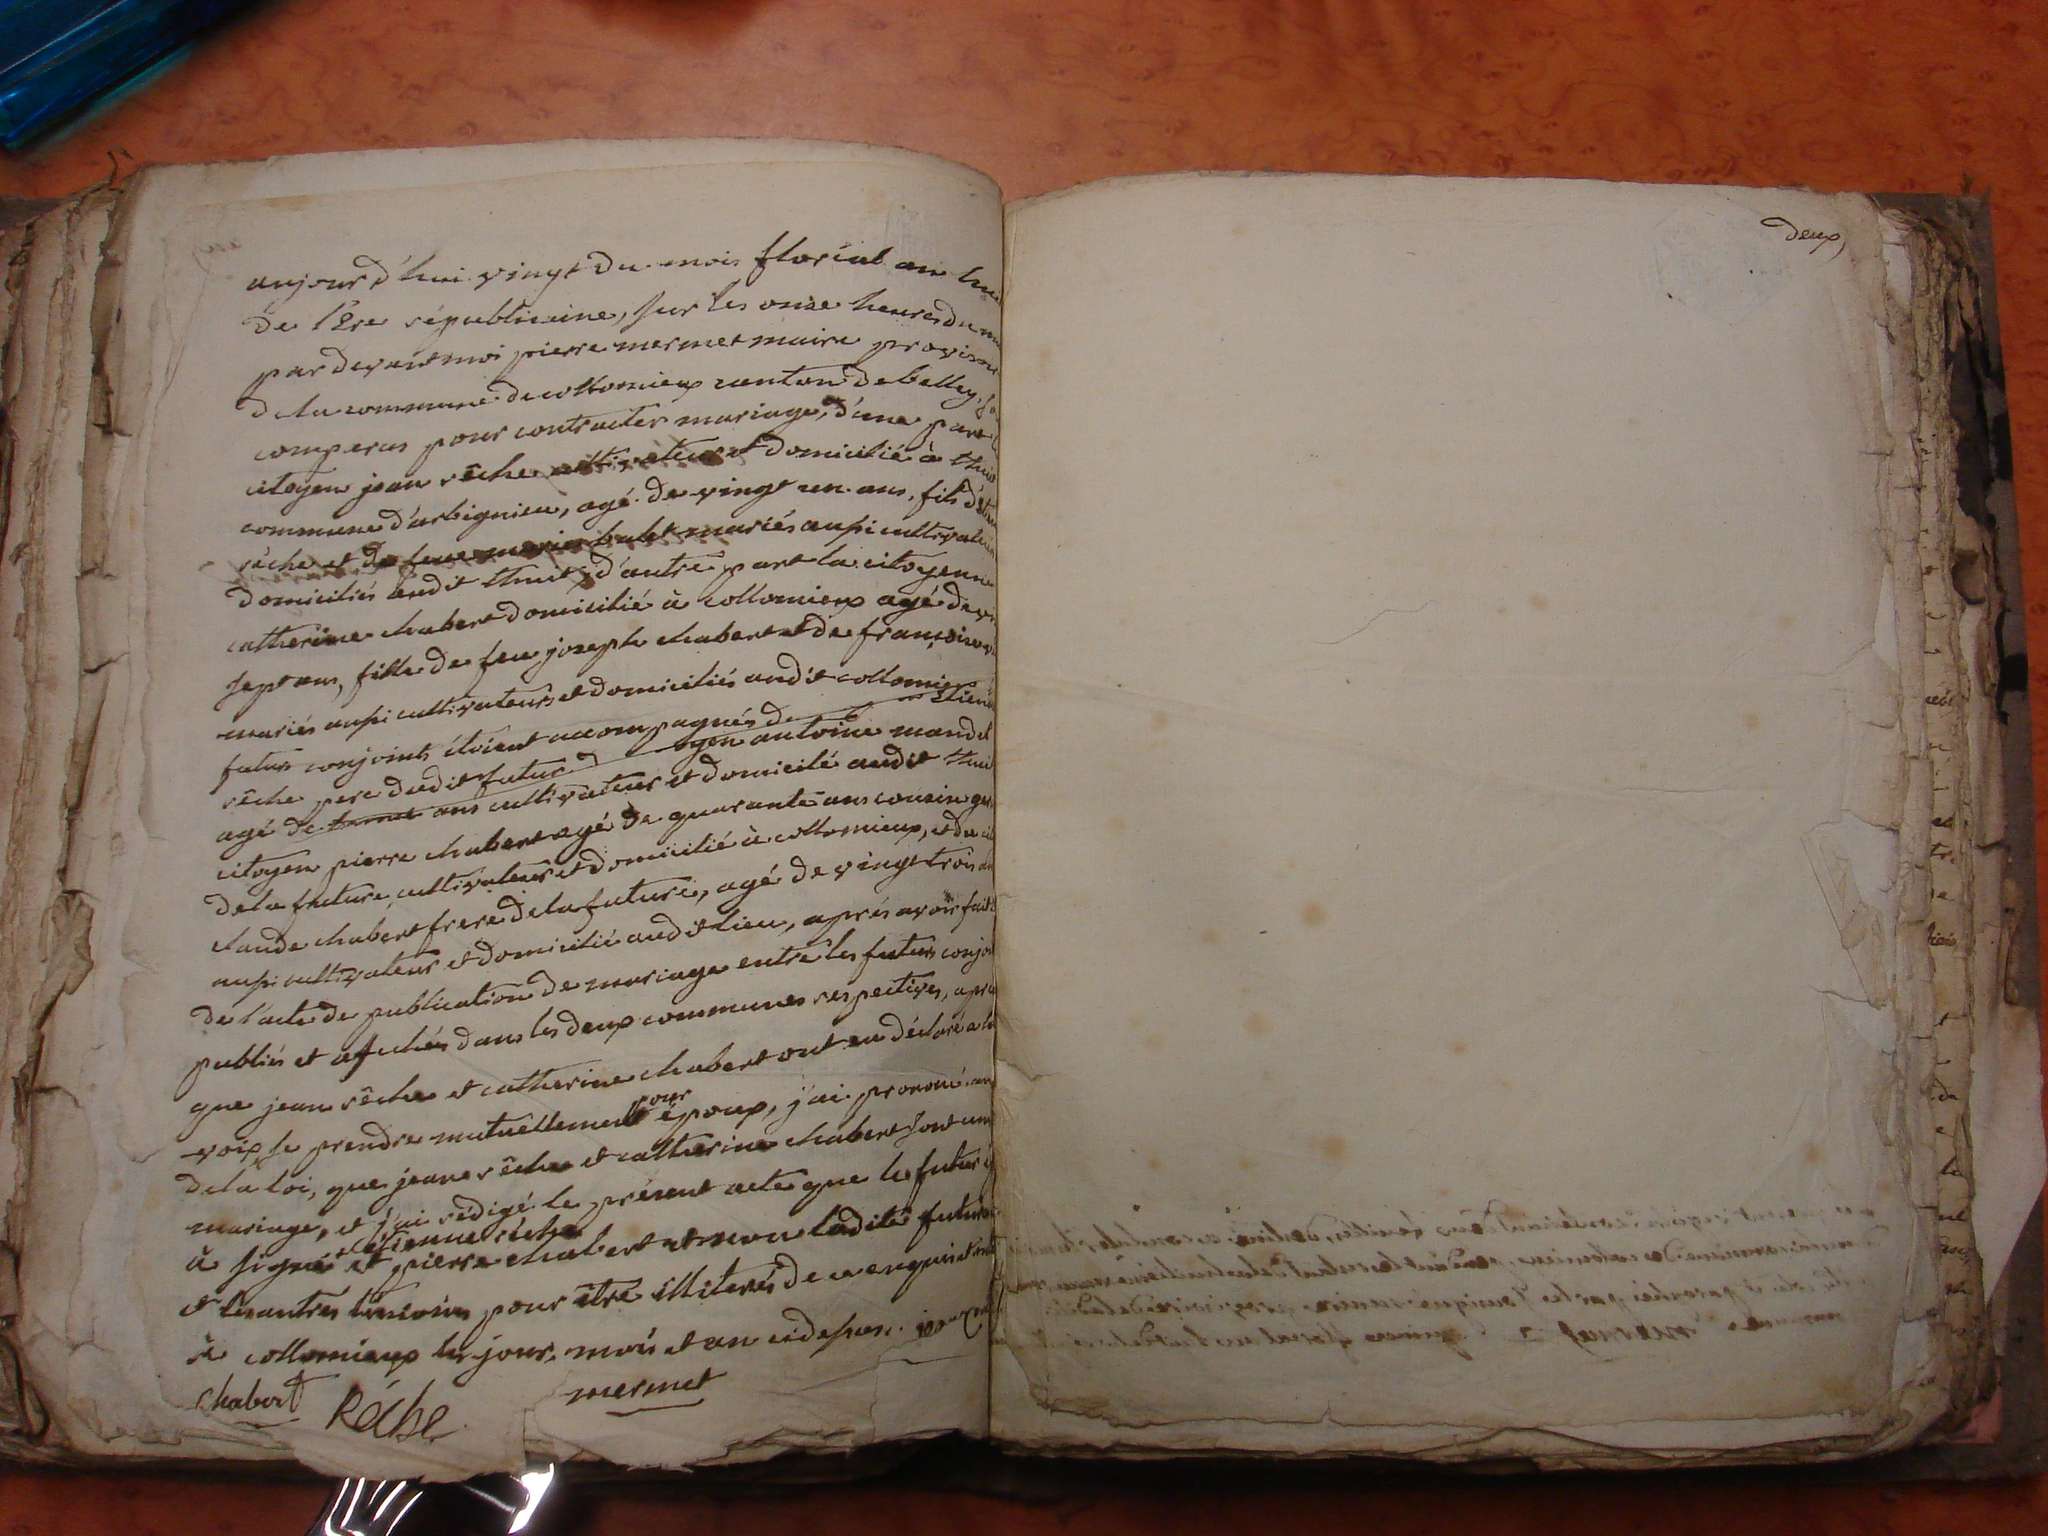 aujourd'hui vingt du mois florial an hui
de l'Ere républicaine, sur les onze heures du m
par devant moi pierre mermet maire provisoi
de la commune de collomieux canton de belley, so
comperus pour contracter mariage, d'une part
citoyen jean rêche cultivateur et domicilié à thuit
commune d'arbignieu, agé de vingt un ans, fils d'étien
rêche et de feue marie mariés aussi cultivateur
domiciliés audit thuit, d'autre part la citoyenne
catherine chabert domicilié à collomieux agé de vi
sept ans, fille de feu joseph chabert et de françoise
mariés aussi cultivateurs et domiciliés audit collomieux
futurs conjoints étoient accompagnés de étienne
rêche pere dudit futur antoine mandel
agé de ans cultivateur et domicilé audit thuit
citoyen pierre chabert agé de quarante ans cousin ger
de la future, cultivateur et domicilié à collomieux, et du cit
claude chabert frere de la future, agé de vingt trois an
aussi cultivateur et domicilié audit lieu, aprés avoir fait
de l'acte de publication de mariage entre les futurs conjoi
publiés et afichés dans les deux communes respectives, aprés
que jean rêche et catherine chabert ont eu déclaré a ha
voix se prendre mutuellement pour époux, j'ai prononcé au
de la loi, que jean rêche et catherine chabert sont uni
mariage, et j'ai rédigé le présent acte que le futur
à signé et etienne rêche et pierre chabert et non ladite future
et les autres témoins pour être illiterés de ce enquis et
à collomieux les jour, mois et an cidessus.
Chabert Réche mermet
deux,